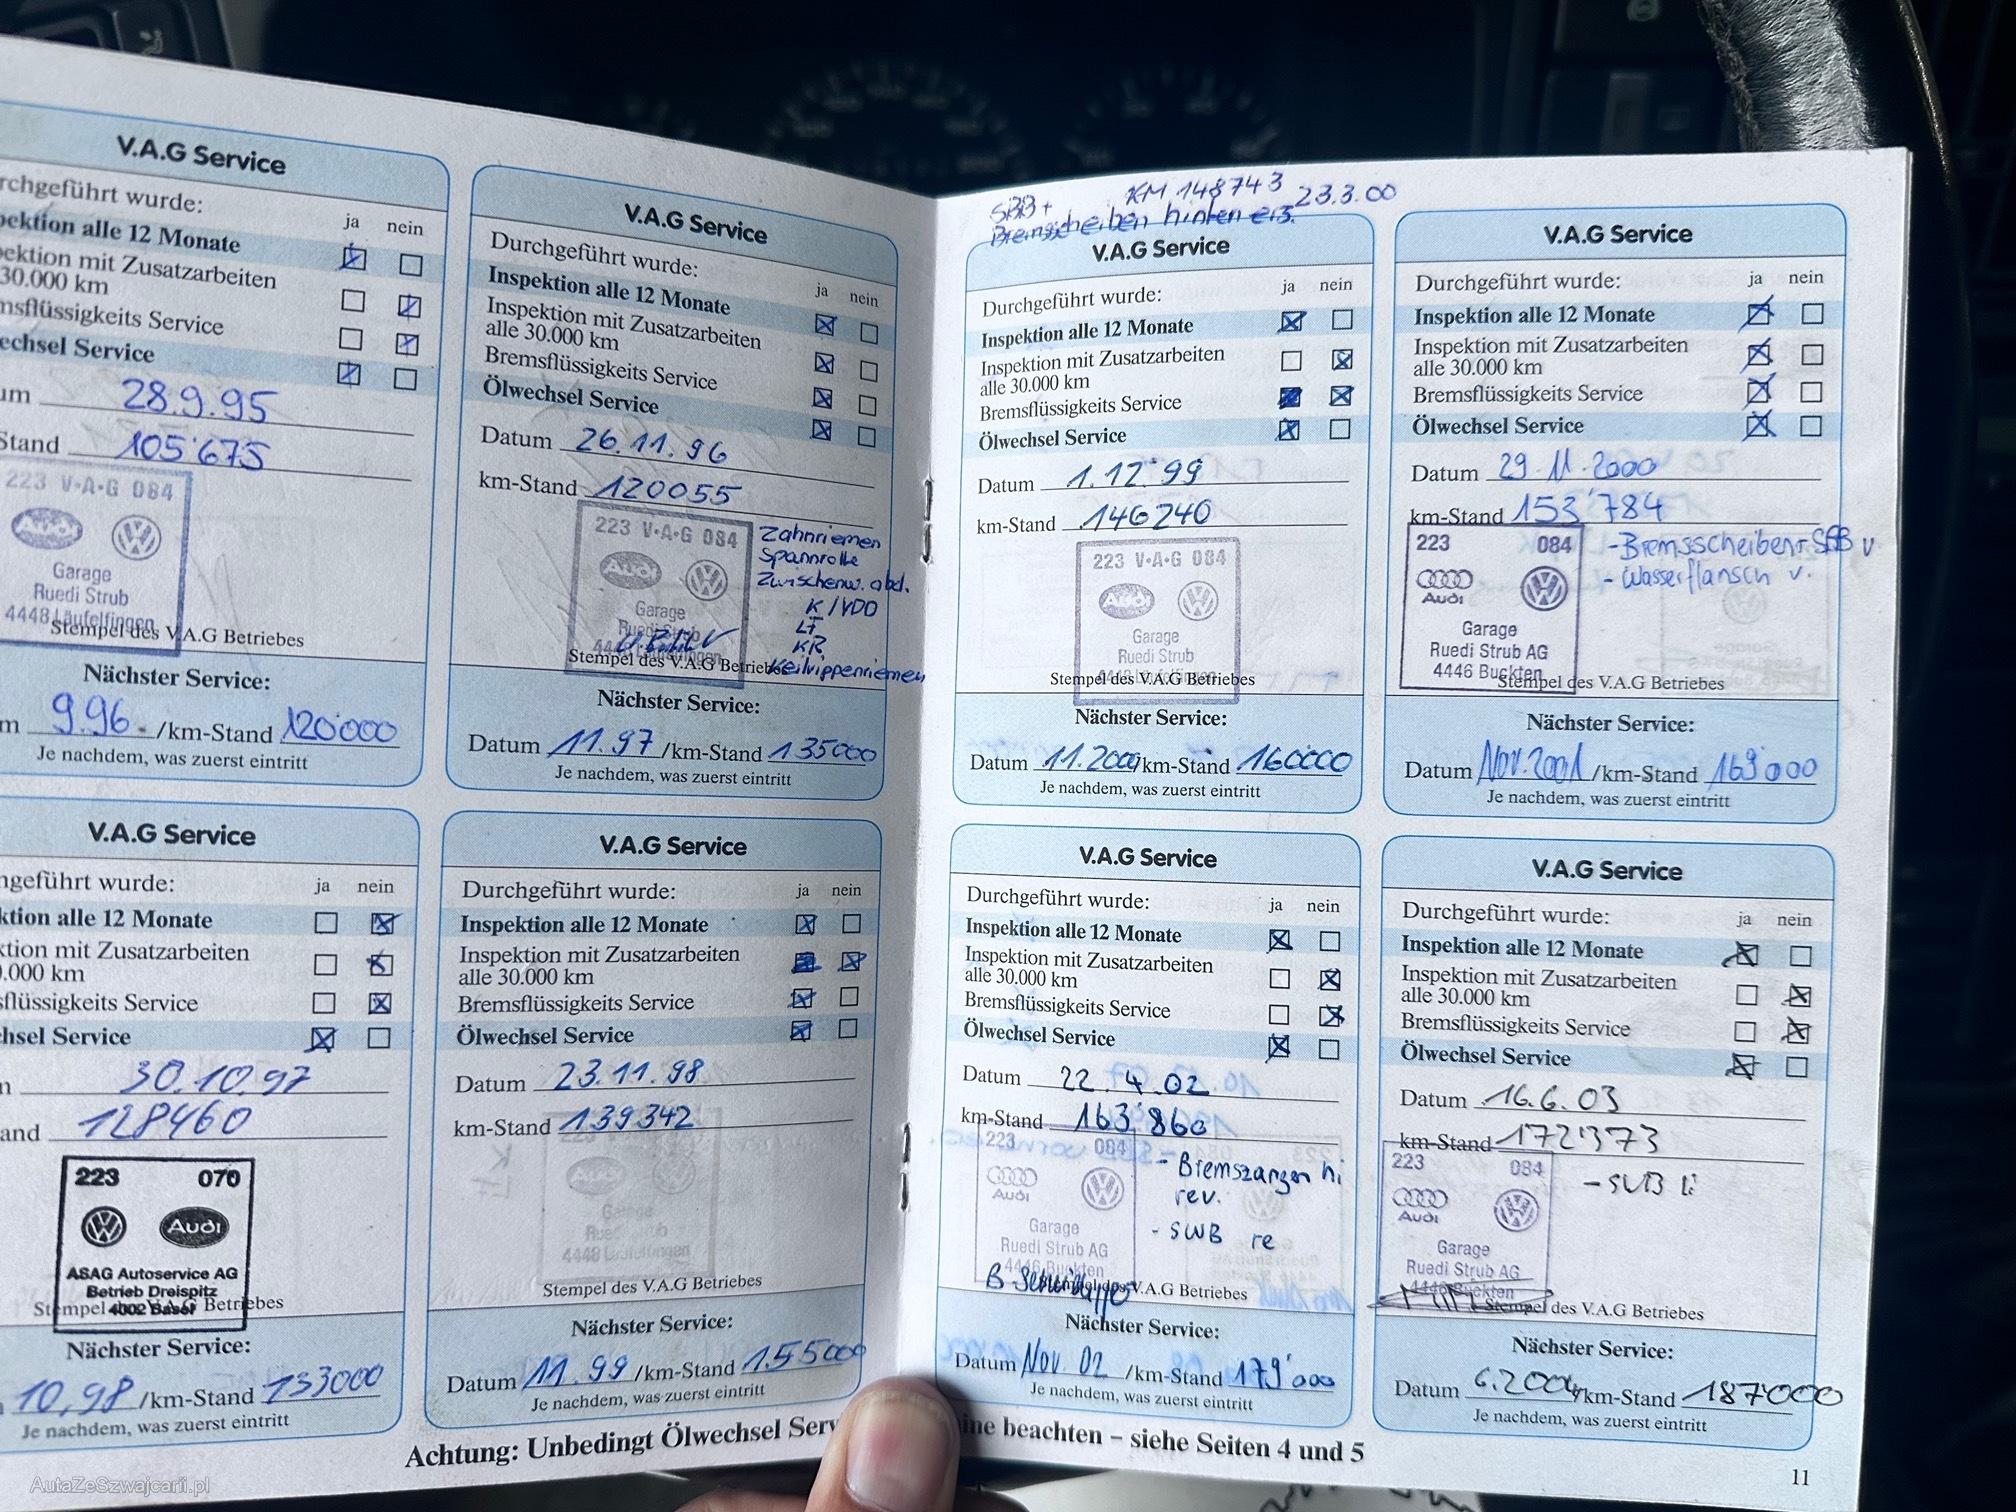 V.A.G Service
rchgeführt wurde:
ja nein
pektion alle 12 Monate
pektion mit Zusatzarbeiten
30.000 km
msflüssigkeits Service
echsel Service
um 28.9.95
Stand 105'675
223 V·A·G 084
Audi
Garage
Ruedi Strub
4448 Läufelfingen
Stempel des V.A.G Betriebes
Nächster Service:
m 9.96. /km-Stand 120'000
Je nachdem, was zuerst eintritt
V.A.G Service
Durchgeführt wurde:
ja nein
Inspektion alle 12 Monate
Inspektion mit Zusatzarbeiten
alle 30.000 km
Bremsflüssigkeits Service
Ölwechsel Service
Datum 26.11.96
km-Stand 120055
223 V·A·G 084
Audi
Garage
Ruedi Strub
Zahnriemen
Spannrolle
Zwischenw. abd.
K/VDO
LF
KR
Keilrippenriemen
Stempel des V.A.G Betriebes
Nächster Service:
Datum 11.97 /km-Stand 135000
Je nachdem, was zuerst eintritt
V.A.G Service
ngeführt wurde:
ja nein
ktion alle 12 Monate
ktion mit Zusatzarbeiten
0.000 km
sflüssigkeits Service
hsel Service
n 30.10.97
and 128460
223 070
Audi
ASAG Autoservice AG
Betrieb Dreispitz
4002 Basel
Stempel des V.A.G Betriebes
Nächster Service:
10.98 /km-Stand 133000
Je nachdem, was zuerst eintritt
V.A.G Service
Durchgeführt wurde:
ja nein
Inspektion alle 12 Monate
Inspektion mit Zusatzarbeiten
alle 30.000 km
Bremsflüssigkeits Service
Ölwechsel Service
Datum 23.11.98
km-Stand 139342
223 V·A·G 084
Garage
Ruedi Strub
4448 Läufelfingen
Stempel des V.A.G Betriebes
Nächster Service:
Datum 11.99 /km-Stand 155000
Je nachdem, was zuerst eintritt
Achtung: Unbedingt Ölwechsel Serv
SBB + KM 148743 23.3.00
Bremsscheiben hinten ers.
V.A.G Service
Durchgeführt wurde:
ja nein
Inspektion alle 12 Monate
Inspektion mit Zusatzarbeiten
alle 30.000 km
Bremsflüssigkeits Service
Ölwechsel Service
Datum 1.12.99
km-Stand 146240
223 V·A·G 084
Audi
Garage
Ruedi Strub
4448 Läufelfingen
Stempel des V.A.G Betriebes
Nächster Service:
Datum 11.2000/km-Stand 160000
Je nachdem, was zuerst eintritt
V.A.G Service
Durchgeführt wurde:
ja nein
Inspektion alle 12 Monate
Inspektion mit Zusatzarbeiten
alle 30.000 km
Bremsflüssigkeits Service
Ölwechsel Service
Datum 29.11.2000
km-Stand 153'784
223 084
Audi
Garage
Ruedi Strub AG
4446 Buckten
- Bremsscheiben + SBB v
- Wasserflansch v.
Stempel des V.A.G Betriebes
Nächster Service:
Datum Nov. 2001 /km-Stand 169'000
Je nachdem, was zuerst eintritt
V.A.G Service
Durchgeführt wurde:
ja nein
Inspektion alle 12 Monate
Inspektion mit Zusatzarbeiten
alle 30.000 km
Bremsflüssigkeits Service
Ölwechsel Service
Datum 22.4.02
km-Stand 163'860
223 084
Audi
Garage
Ruedi Strub AG
4446 Buckten
- Bremszangen hi
rev.
- SWB re
Stempel des V.A.G Betriebes
Nächster Service:
Datum Nov. 02 /km-Stand 179'000
Je nachdem, was zuerst eintritt
V.A.G Service
Durchgeführt wurde:
ja nein
Inspektion alle 12 Monate
Inspektion mit Zusatzarbeiten
alle 30.000 km
Bremsflüssigkeits Service
Ölwechsel Service
Datum 16.6.03
km-Stand 172'373
223 084
Audi
Garage
Ruedi Strub AG
4446 Buckten
- SWB li
Stempel des V.A.G Betriebes
Nächster Service:
Datum 6.2004/km-Stand 187000
Je nachdem, was zuerst eintritt
ine beachten – siehe Seiten 4 und 5
11
AutaZeSzwajcarii.pl